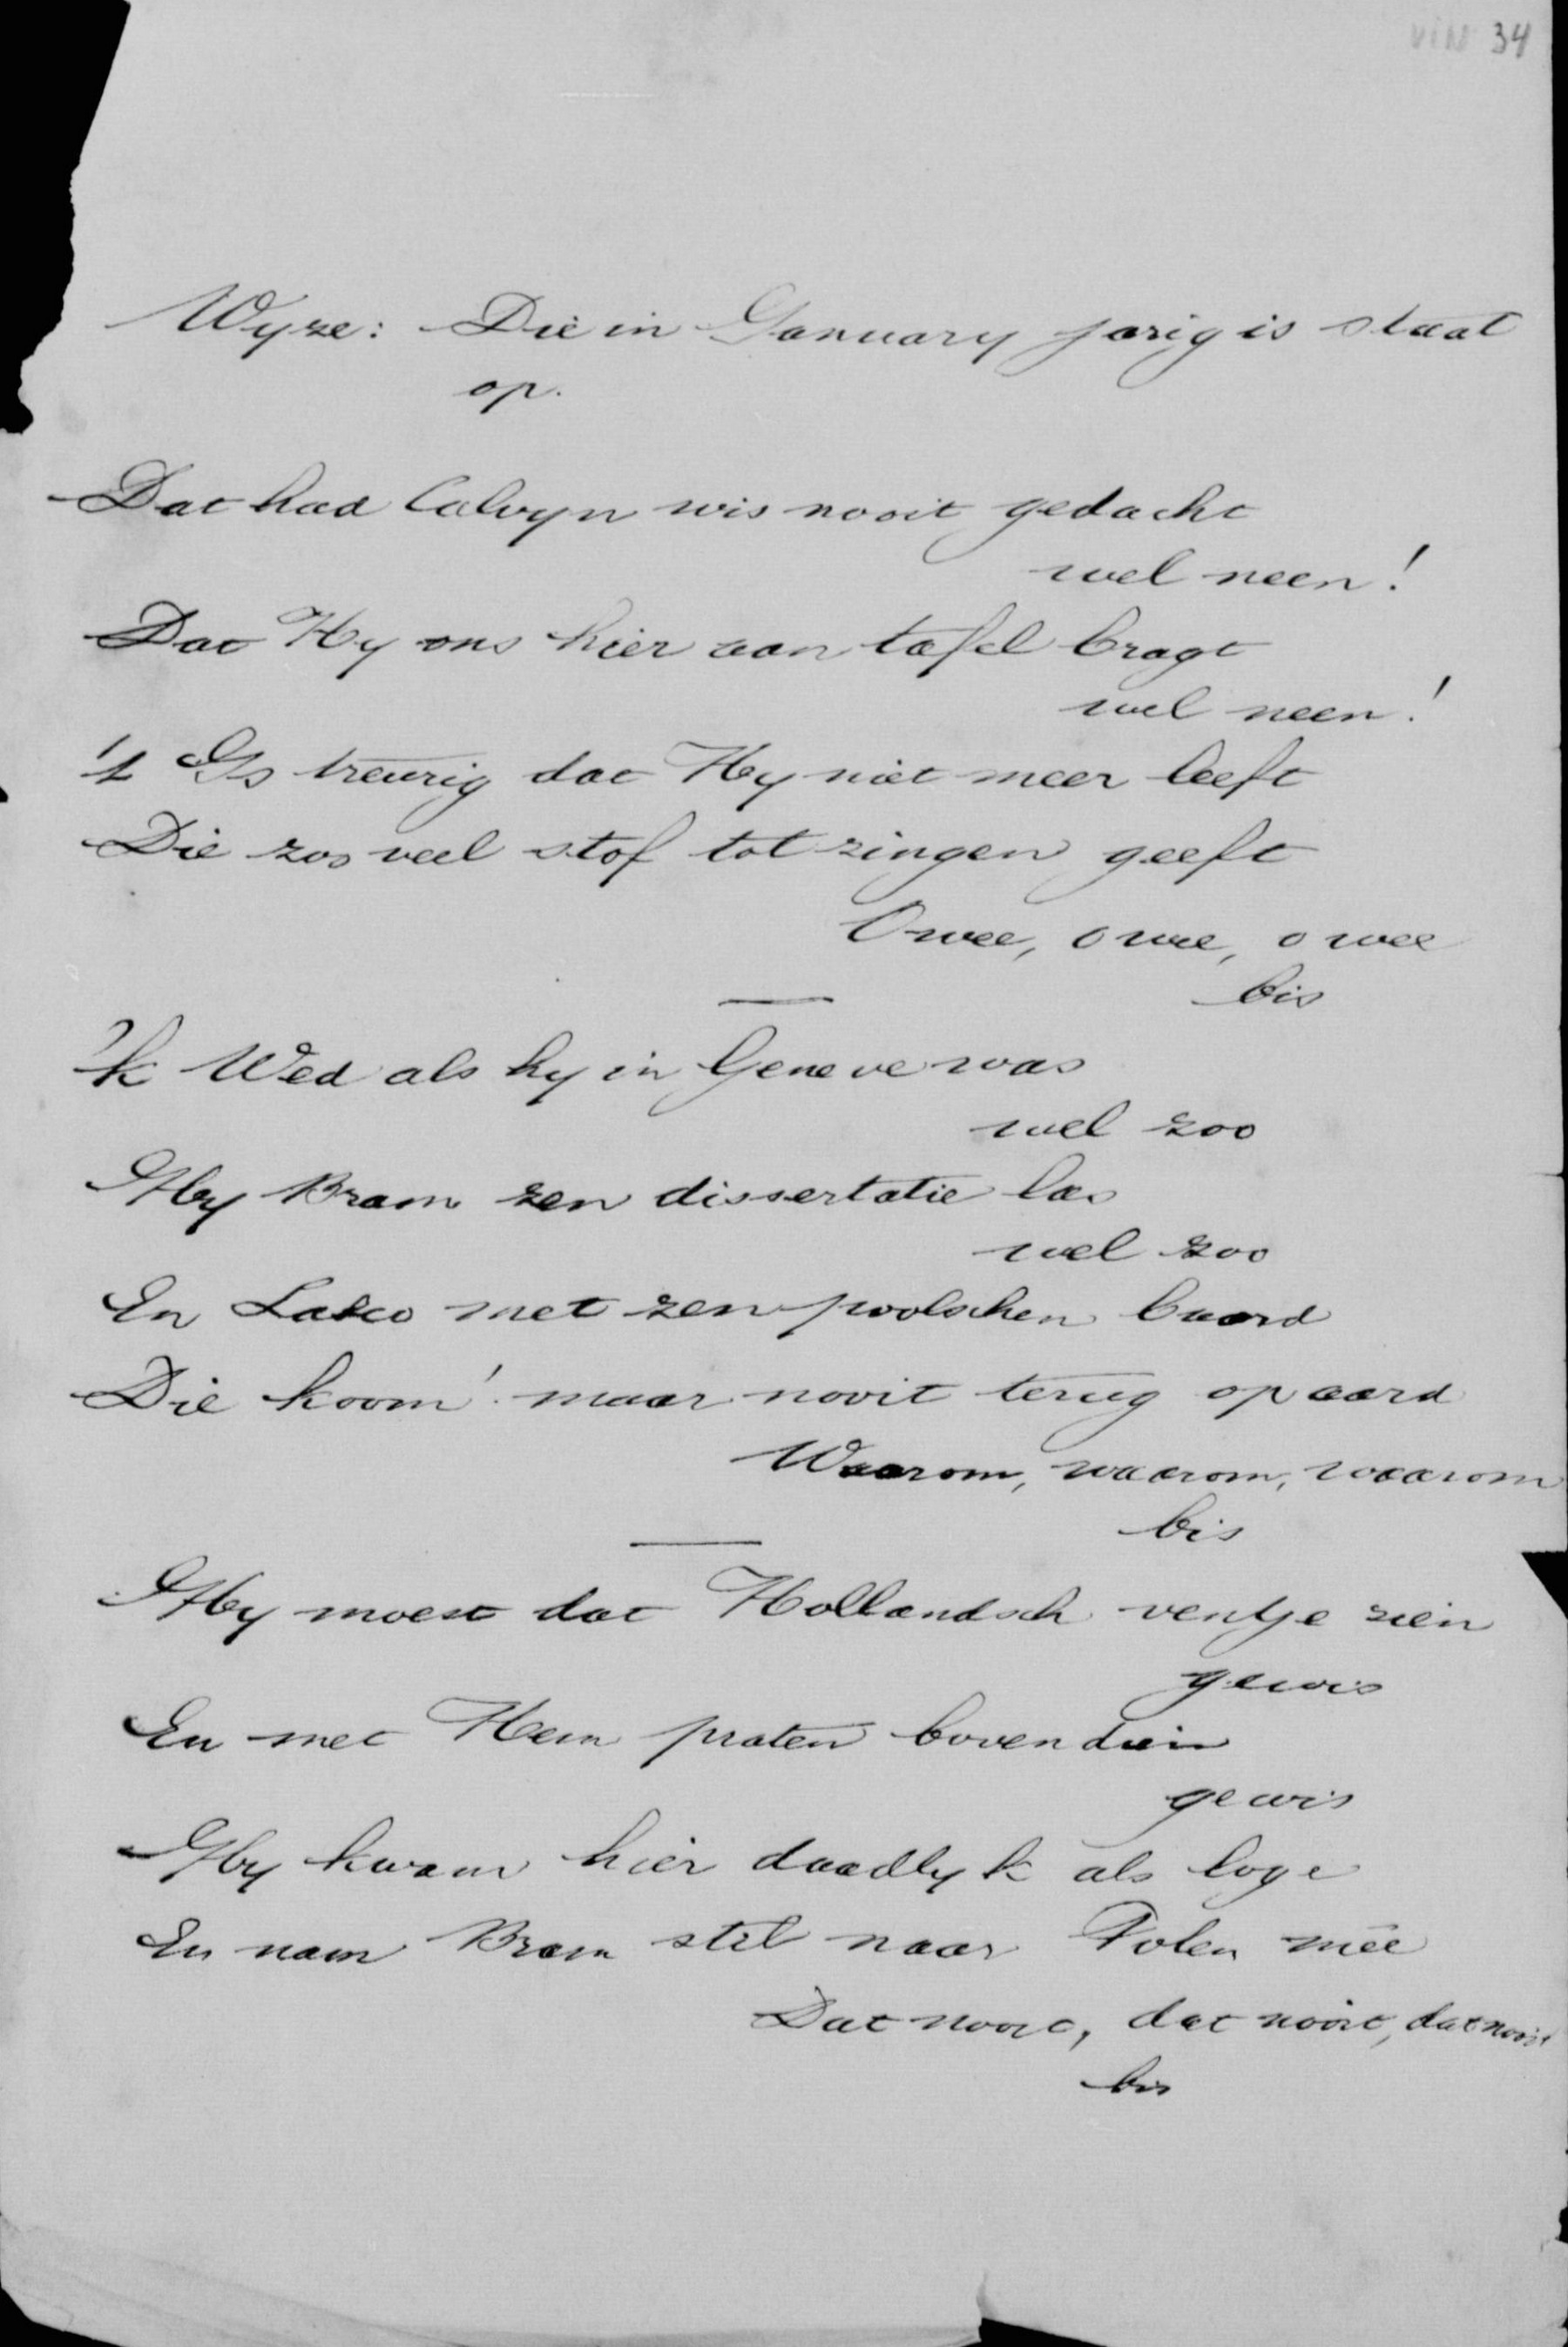 VIII 34
Wyze: Die in January jarig is staat
op.
Dat had Calvyn wis nooit gedacht
wel neen!
Dat Hy ons hier aan tafel bragt
wel neen!
't Is treurig dat Hy niet meer leeft
Die zoo veel stof tot zingen geeft
O wee, o wee, o wee
bis
'k Wed als hy in Geneve was
wel zoo
Hy Bram zen dissertatie las
wel zoo
En Lasco met zen poolschen baard
Die koom' maar nooit terug op aard
Waarom, waarom, waarom
bis
Hy moest dat Hollandsch ventje zien
gewis
En met Hem praten bovendien
gewis
Hy kwam hier daadlyk als loge
En nam Bram stil naar Polen meê
Dat nooit, dat nooit, dat nooit
bis